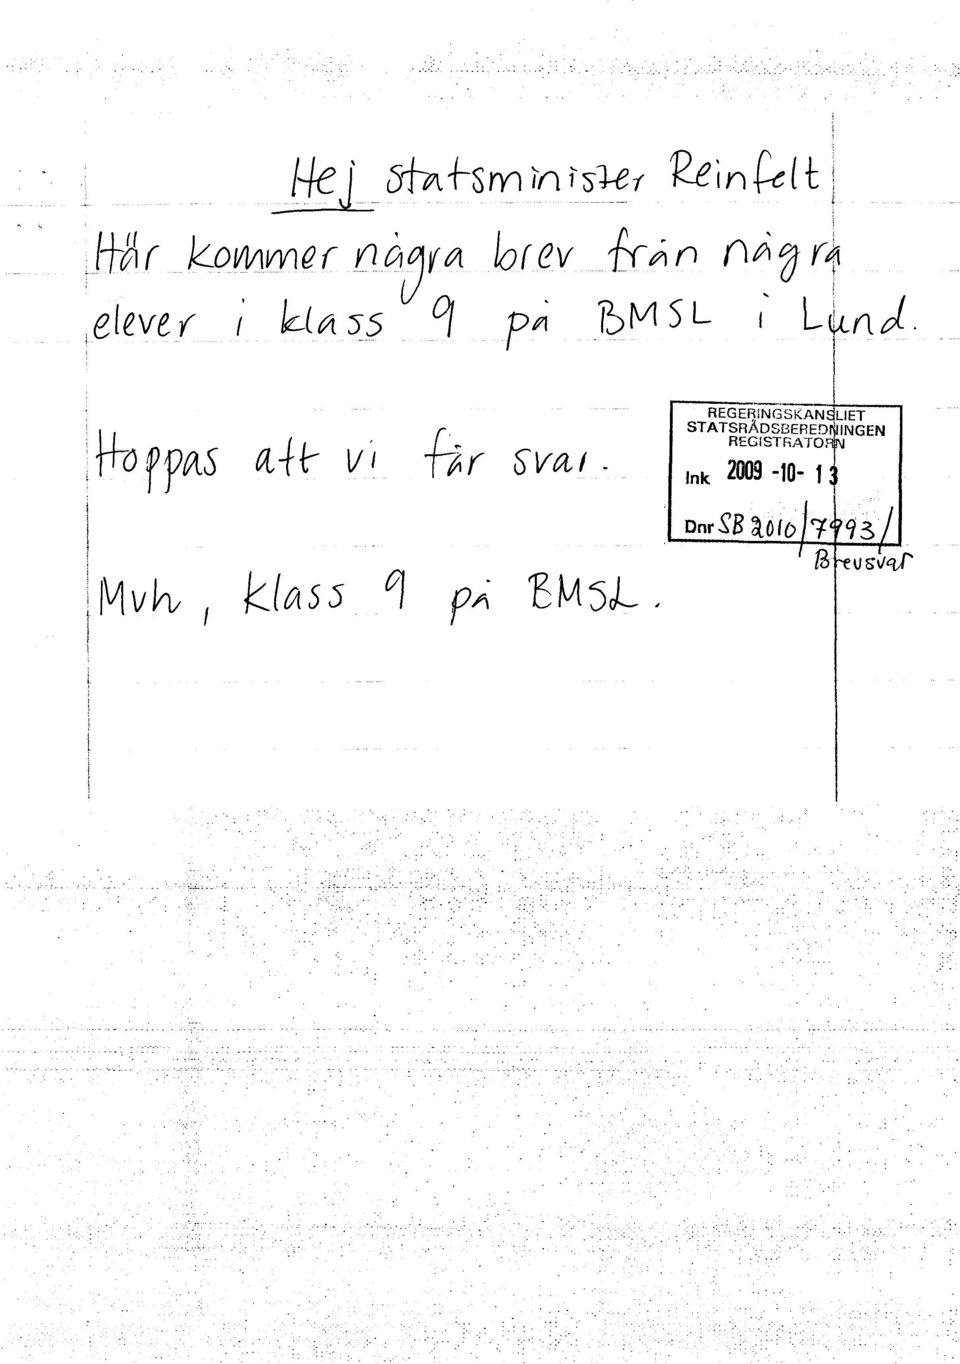 Hej statsminister Reinfelt
Här kommer några brev från några
elever i klass 9 på BMSL i Lund.
Hoppas att vi får svar.
REGERINGSKANSLIET
STATSRÅDSBEREDNINGEN
REGISTRATORN
Ink 2009 -10- 13
Dnr SB 2010/7993/
Brevsvar
Mvh, klass 9 på BMSL.